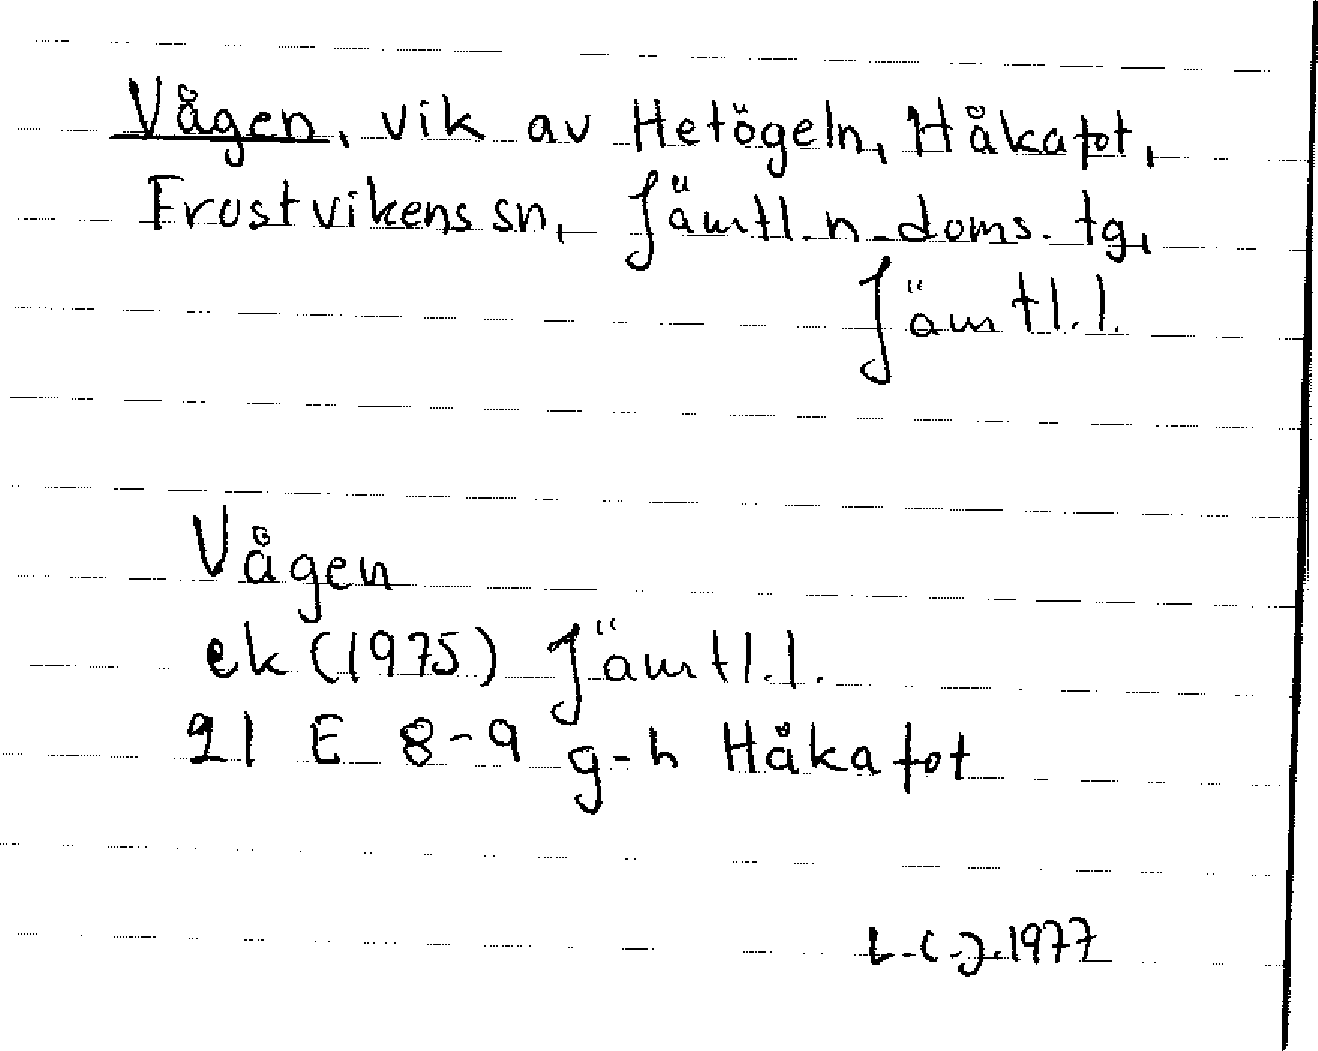 Vågen, vik av Hetögeln, Håkafot,
Frostvikens sn, Jämtl. n. doms. tg,
Jämtl. l.
Vågen
ek (1975) Jämtl. l.
21 E 8-9 g-h Håkafot
L-C J. 1977